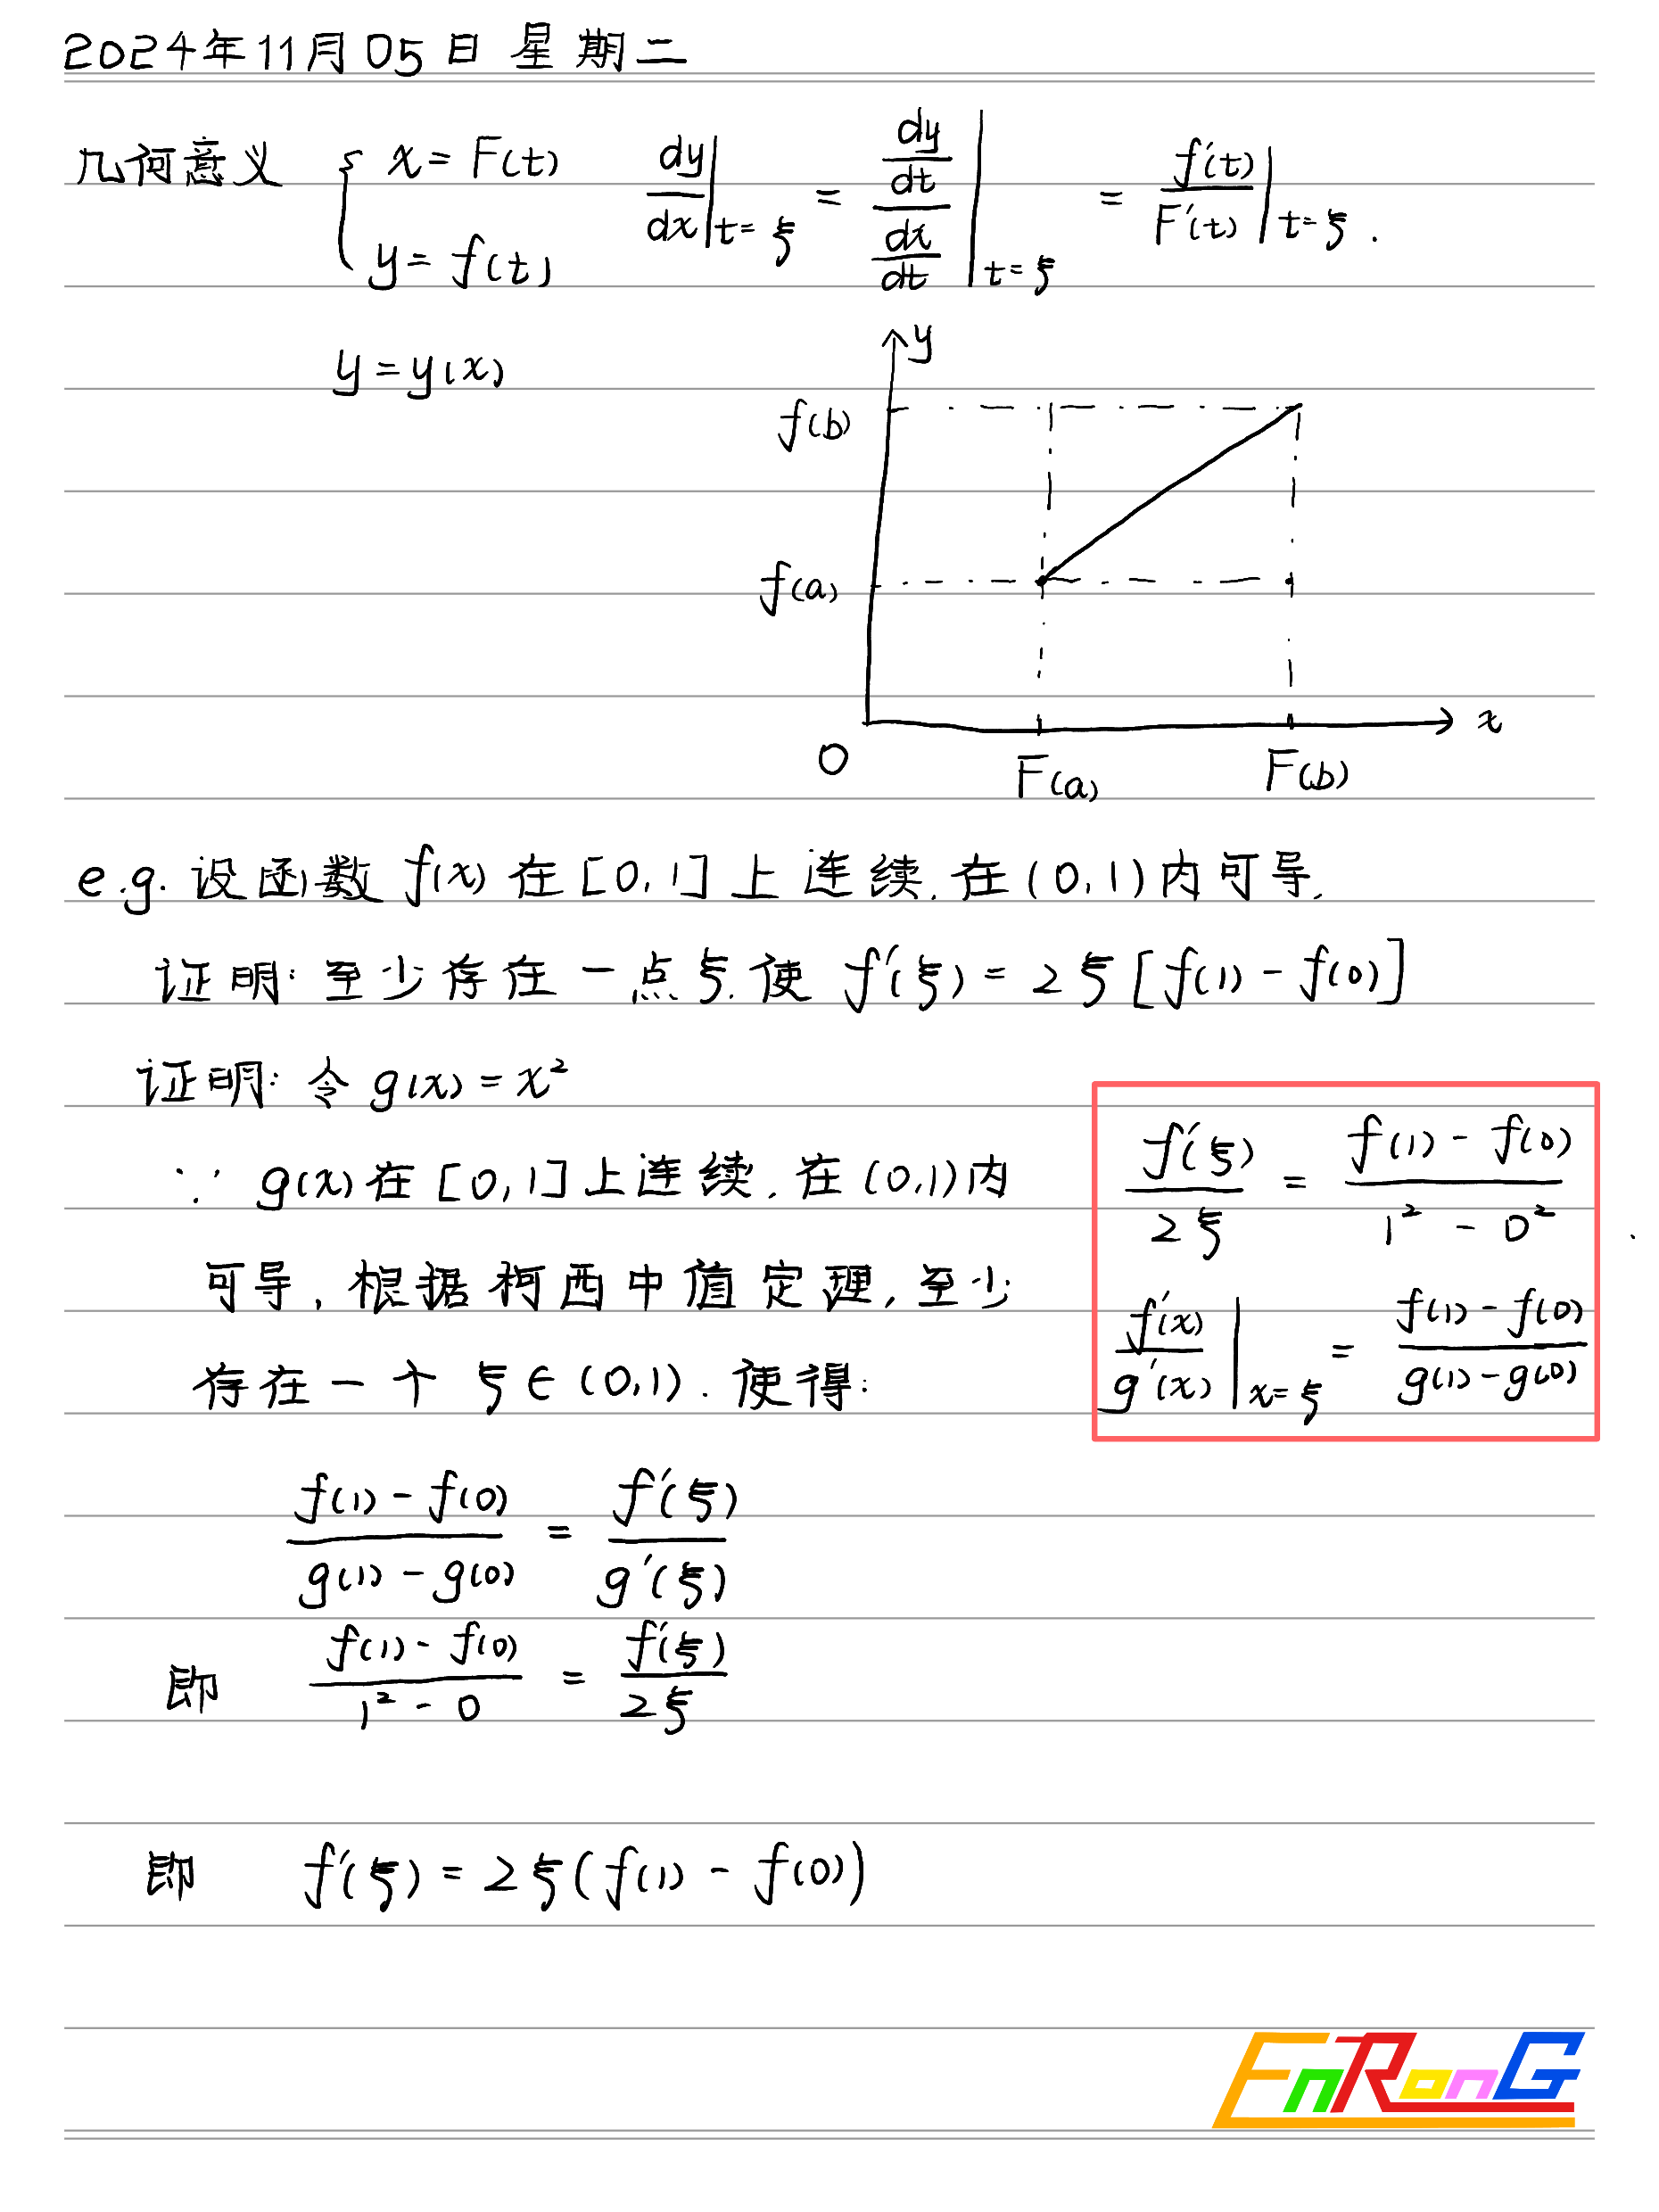 2024年11月05日 星期二
几何意义 { x = F(t) dy/dx |t=ξ = (dy/dt)/(dx/dt) |t=ξ = f'(t)/F'(t) |t=ξ .
y = f(t)
y = y(x)
y
f(b)
f(a)
O F(a) F(b) x
e.g. 设函数 f(x) 在 [0,1] 上连续, 在 (0,1) 内可导,
证明: 至少存在一点 ξ, 使 f'(ξ) = 2ξ [f(1) - f(0)]
证明: 令 g(x) = x²
∵ g(x) 在 [0,1] 上连续, 在 (0,1) 内
可导, 根据柯西中值定理, 至少
存在一个 ξ ∈ (0,1), 使得:
f'(ξ)/2ξ = (f(1) - f(0))/(1² - 0²)
f'(x)/g'(x) |x=ξ = (f(1) - f(0))/(g(1) - g(0))
(f(1) - f(0))/(g(1) - g(0)) = f'(ξ)/g'(ξ)
即 (f(1) - f(0))/(1² - 0) = f'(ξ)/2ξ
即 f'(ξ) = 2ξ(f(1) - f(0))
EnRonG